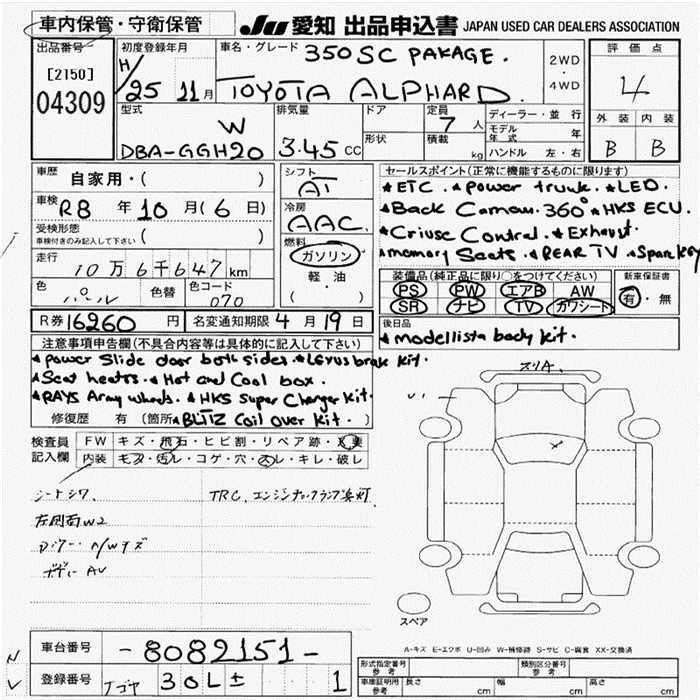 車内保管・守衛保管
JU 愛知 出品申込書 JAPAN USED CAR DEALERS ASSOCIATION
出品番号
[2150]
04309
初度登録年月
H/25 11月
車名・グレード 350SC PAKAGE.
TOYOTA ALPHARD.
2WD
・
4WD
評価点
4
外装 内装
B B
型式
W
DBA-GGH20
排気量
3.45 CC
ドア
形状
定員
7人
積載
kg
ディーラー・並行
モデル年式 年
ハンドル 左・右
車歴 自家用・( )
車検 R8年 10月(6日)
受検形態
車検付きのみ記入して下さい ( )
走行 10万6千647km
色 パール 色替 色コード 070
シフト
AT
冷房
AAC
燃料
ガソリン
(軽・油)
セールスポイント(正常に機能するものに限ります)
★ETC. ★power trunk. ★LED.
★Back Caman. 360° ★HKS ECU.
★Criuse Contral. ★Exhaust.
★memory Seats. ★REAR TV ★Spankey
装備品(純正品に限り○をつけてください)
PS PW エアB AW
SR ナビ TV カワシート
新車保証書
有・無
R券 16260円 名変通知期限 4月19日
後日品
★modellista body kit.
注意事項申告欄(不具合内容等は具体的に記入して下さい)
★power Slide door both sides. ★Lexus brak kit.
★Seat heatrs. ★Hot and Cool box.
★RAYS Array wheels. ★HKS super Charger kit.
修復歴 有(箇所 ★BLITZ Coil over kit.
検査員記入欄
FW キズ・飛石・ヒビ割・リペア跡・X要
内装 モゲ・汚レ・コゲ・穴・スレ・キレ・破レ
シートシワ. TRC、エンジンチェックランプ点灯
左側面W2
A/Wキズ
ボデーAV
スリA.
スペア
A-キズ E-エクボ U-凹み W-補修跡 S-サビ C-腐食 XX-交換済
車台番号 -8082151-
登録番号 ナゴヤ 30L± 1
形式指定番号 参考
類別区分番号 参考
車庫証明用 参考 長さ cm 幅 cm 高さ cm